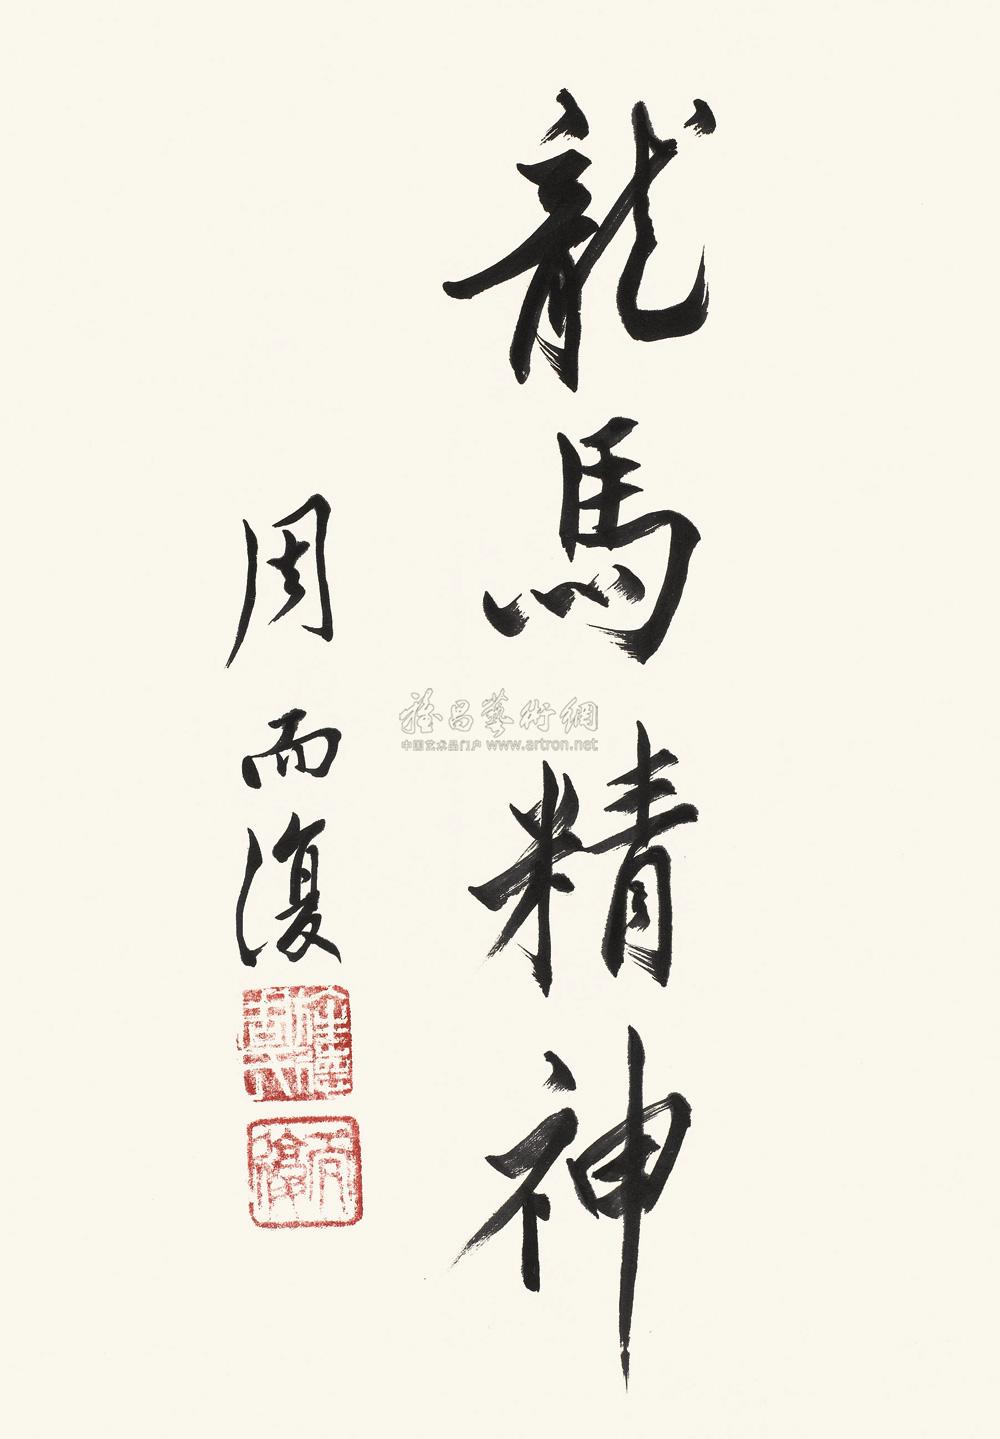 龍馬精神
周而復
雅昌藝術網
中国艺术品门户 www.artron.net
而復